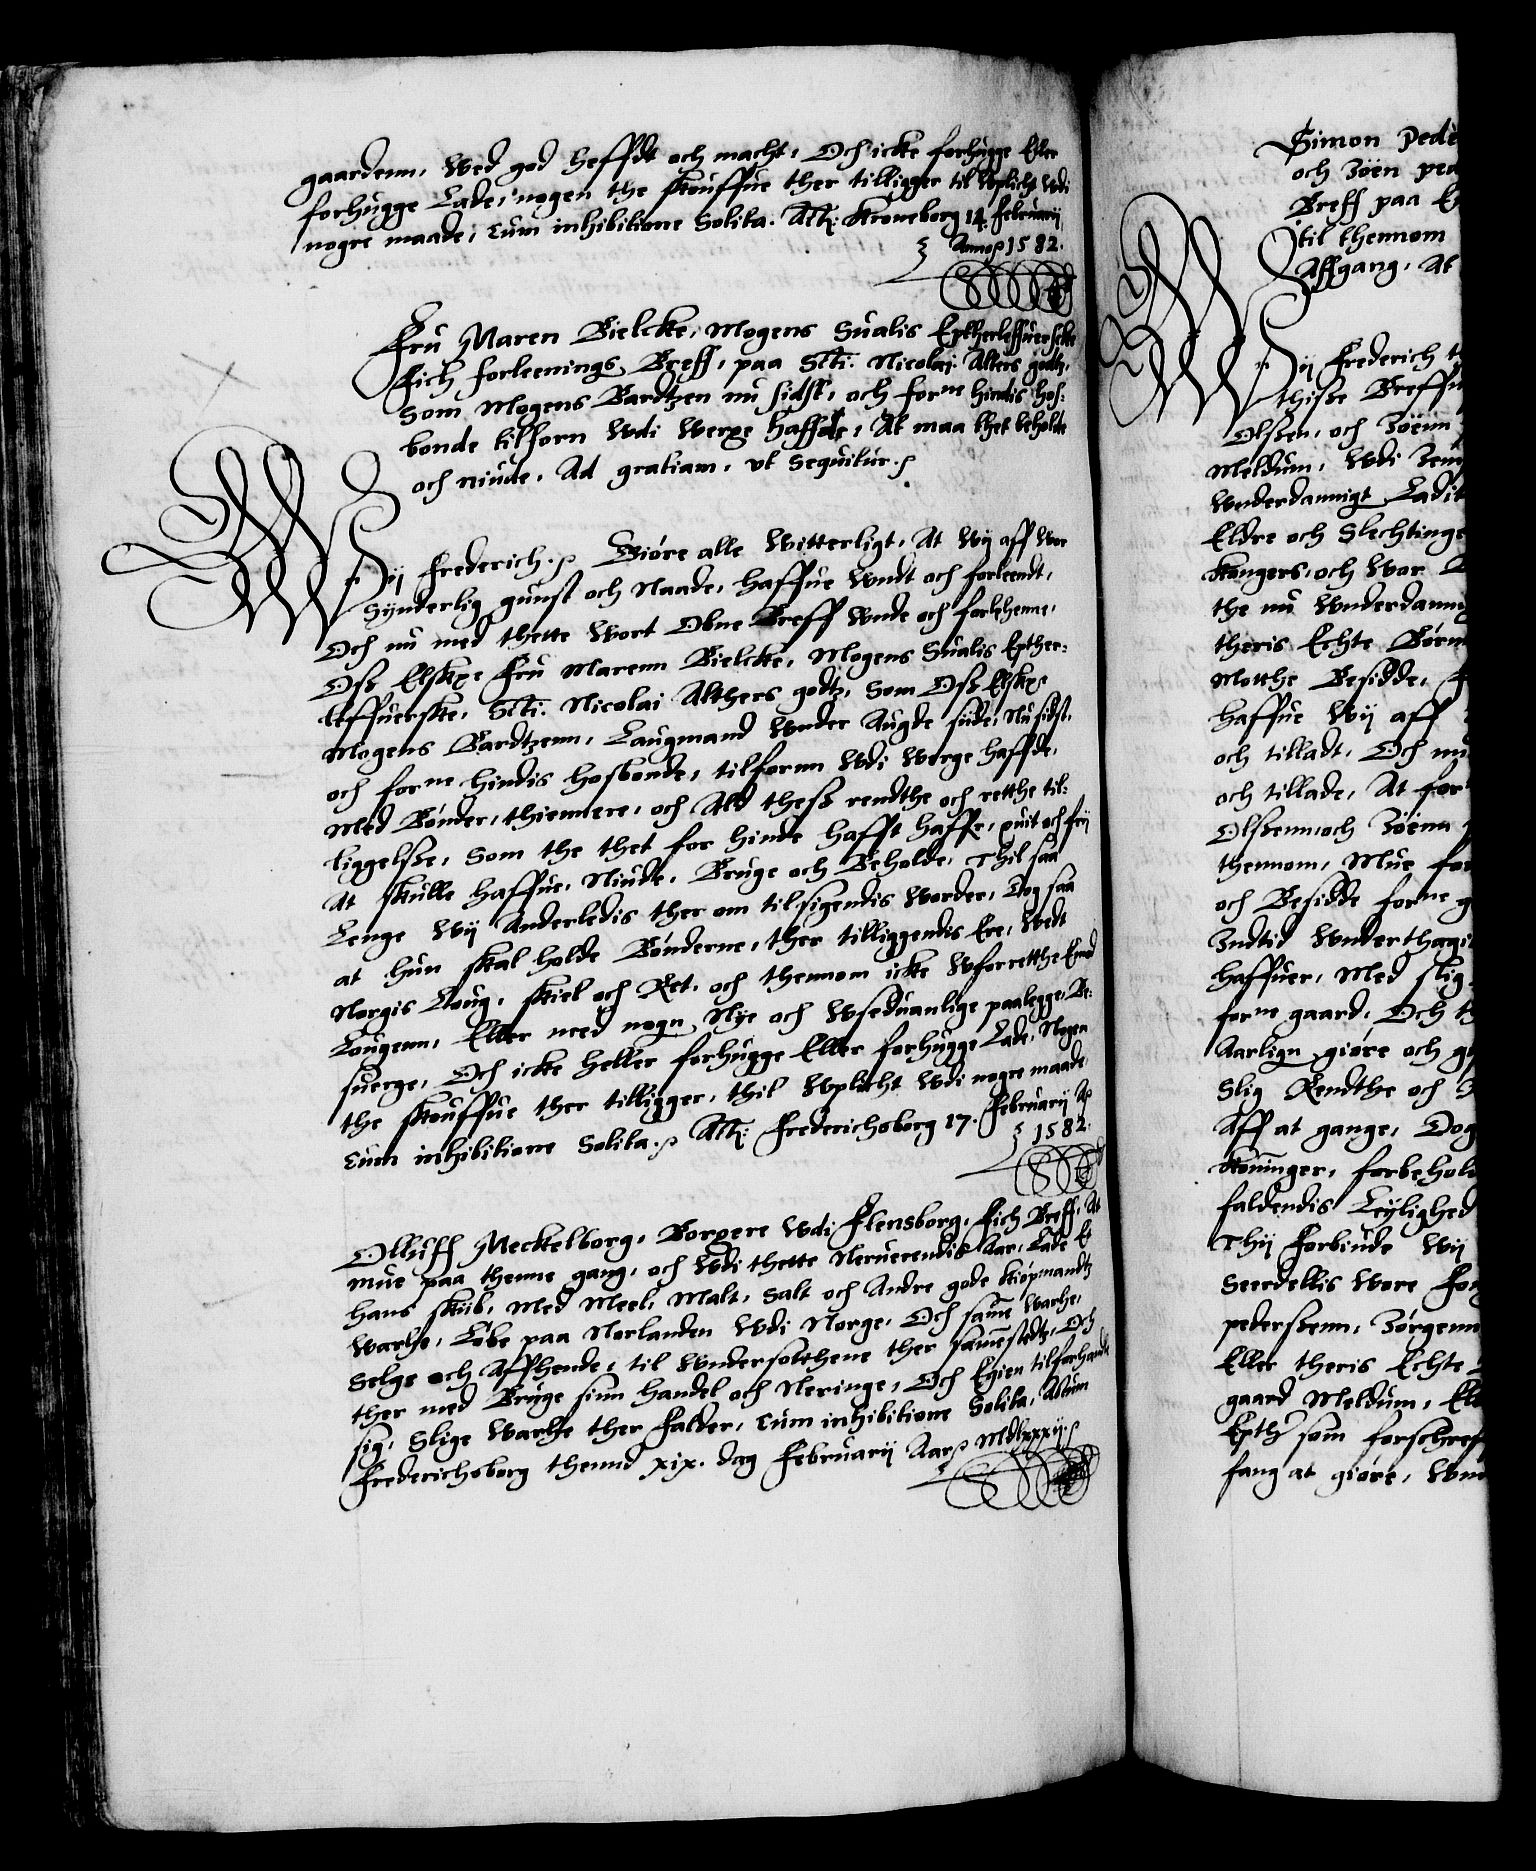 gaardenn, Wed god heffdt och macht, Och icke forhugge Eller
forhugge Lade, nogen the skouffue ther tilligger til Wplicht Wdi
nogre maade, Cum inhibitione Solita. Actt: Kroneborg 14. Februarij
Anno 1582.
Fru Maren Bielcke, Mogens Sualis Eptherleffuerscke
Fich forleenings Breff, paa Scti. Nicolai Alters godtz,
Som Mogens Bardtzen nu sidst, och forne hindis hos-
bonde tilforn Wdi Werge haffde, At maa thet beholde
och niude, Ad gratiam, vt Sequitur.
Wij Frederich. Giøre alle Witterligt, At Wij aff Wor
Synderlig gunst och Naade, haffue Wndt och forleendt,
Och nu med thette Wort Obne Breff Wnde och forlhene,
Oss Elskge Fru Marenn Bielcke, Mogens Sualis Epther-
leffuerske, Scti. Nicolai Althers godtz, Som Oss Elskge
Mogens Bardtzenn, Laugmand Wnder Augde siide, Nu sidst,
och forne hindis hosbonde, tilfornn Wdi Werge haffde,
Med Bønder, thiennere, och Ald thess rendthe och retthe til-
liggelsse, Som the thet for hinde hafft haffe, quit och frij
At skulle haffue, Niude, Bruge och Beholde, Thil saa
Lenge Wij Anderledis ther om tilsigendis Worder, Dog saa
at hun skal holde Bønderne, ther tilliggendis Ere, Wedt
Norgis Loug, skiel och Ret, och thennom icke Wforretthe Emod
Lougenn, Eller med nogn Nye och Wseduanlige paalegge, Be-
suerge, Och icke heller forhugge Eller forhugge Lade, Nogen
the skouffue ther tilligger, thil Wplicht Wdi nogre maade,
Cum inhibitione Solita. Actt: Frederichsborg 17. Februarij A
1582.
Olluff Meckelborg, Borgere Wdi Flensborg, Fich Breff, At
mue paa thenne gang, och Wdi thette Neruerendis Aar, Lade Et
hans skiib, Med Meel, Malt, Salt och Andre gode Kiøpmandtz
Warhe, Løbe paa Norlanden Wdi Norge, Och same Warhe,
Selge och Affhende, til Wndersotthene ther samestedtz, Och
ther med Bruge sinn handel och Neringe, Och Egien tilforhandle
sig, Slige Warhe ther Falder, Cum inhibitione Solita, Actum
Frederichsborg thennd xix. dag Februarij Aar Mdlxxxij
Simon Peder
och Jøen ped
Breff paa
til thennom
Affgang, At
Wij Frederich
thisse Breff
Olssen, och Jøenn
Meldum, Wdi
Wnderdannigt Ladit
Eldre och Slechtinge
Konger, och Wor
the nu Wnderdannig
theris Echte Børn
Motthe Besidde,
haffue Wij aff
och tilladt, Och nu
och tillade, At for
Olssenn, och Jøenn
thennom, Mue for
och Besidde forne g
Indtid Wnderthagit
haffuer, Med slig
forne gaard, Och th
Aarlign giøre och g
Slig Rendthe och
Aff at gange, Dog
Konninger, forbehold
faldendis Leylighed
Thij Forbiude Wij
Seerdellis Wore Fog
pederssenn, Jørgenn
Eller theris Echte
gaard Meldum, Ell
Epth som forschreff
fang at giøre, Wnd